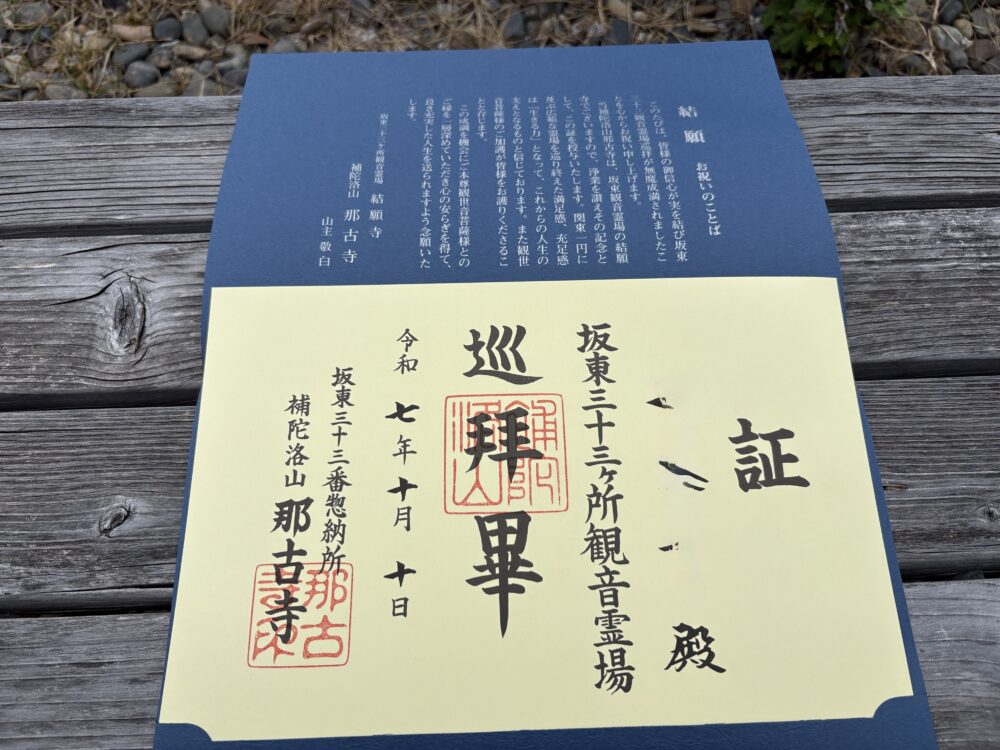 結願 お祝いのことば
このたびは、皆様の御信心が実を結び坂東
三十三観音霊場巡拝が無魔成満されましたこ
とを心からお祝い申し上げます。
当補陀洛山那古寺は、坂東観音霊場の結願
寺でございますので、浄業を讃えその記念と
して、この証を授与いたします。関東一円に
及ぶ広範な霊場を巡り終えた満足感、充足感
は「生きる力」となって、これからの人生の
支えとなるものと信じております。また観世
音菩薩様のご加護が皆様をお護りくださるこ
とと存じます。
この成満を機会にご本尊観世音菩薩様との
ご縁を一層深めていただき心の安らぎを得て、
良き充実した人生を送られますよう念願いた
します。
坂東三十三ヶ所観音霊場 結願寺
補陀洛山 那古寺
山主 敬白
証
殿
坂東三十三ヶ所観音霊場
巡拝畢
補陀洛山
令和七年十月十日
坂東三十三番惣納所
補陀洛山 那古寺
那古寺印